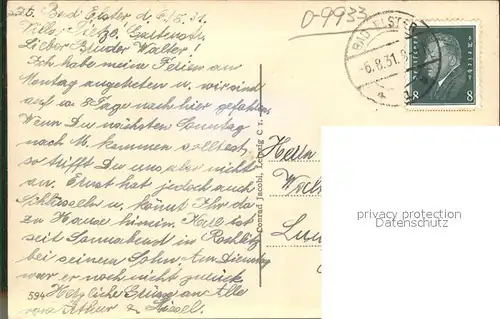 Bad Elster d. 6/8. 31.
Villa Tietze, Gartenstr.
Lieber Bruder Walter!
Ich habe meine Ferien am
Montag angetreten u. wir sind
auf ca 8 Tage nach hier gefahren.
Wenn Du nächsten Sonntag
nach M. kommen solltest,
so trifft Du uns aber nicht
an. Ernst hat jedoch auch
Schlüssel u. könnt Ihr da
zu Hause hinein. Kurt ist
seit Sonnabend in Rochlitz
bei seinem Sohn. Am Dienstag
war er noch nicht zurück
Herzliche Grüße an Alle
von Arthur &
594
Conrad Jacobi, Leipzig C 1.
0-9933
BAD ELSTER
-6.8.31.
8 8
Herrn
privacy protection
Datenschutz